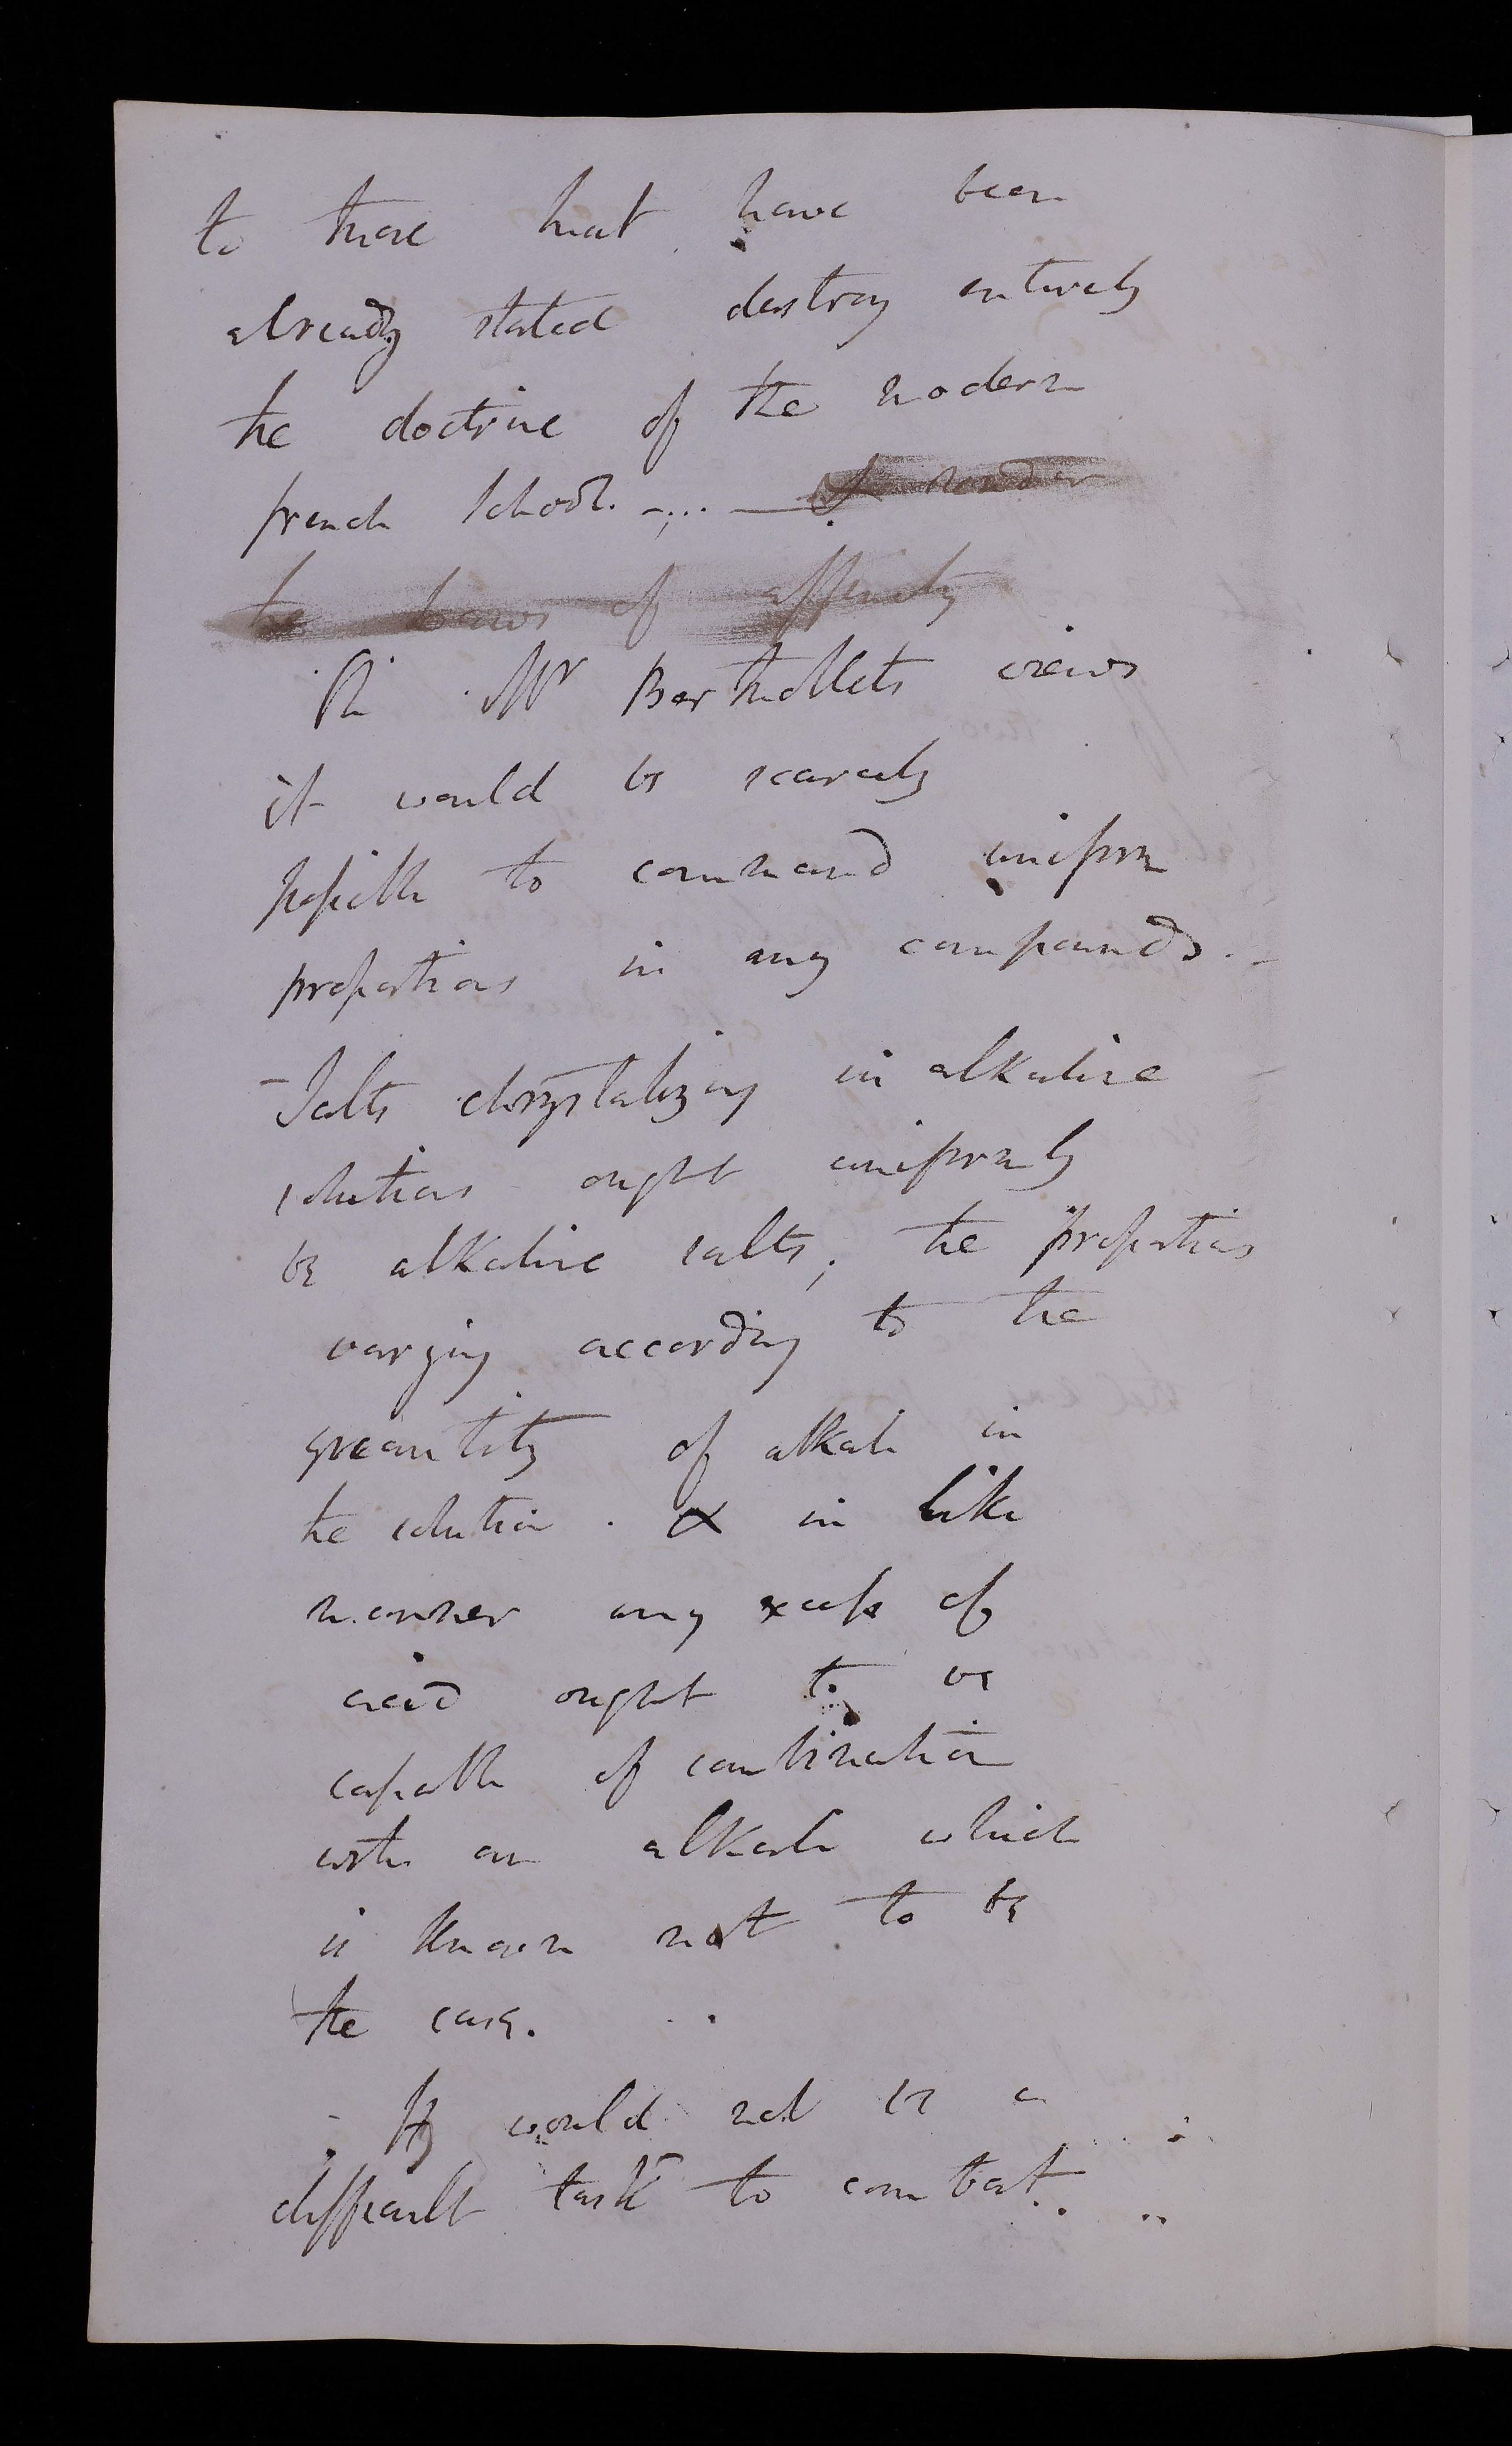 to those that have been
already stated destroy entirely
the doctrine of the modern
french school. -;.. —
the laws of affinity
On Mr Berthollets views
it would be scarcely
possible to command uniform
proportions in any compounds. -
- Salts chrystalizing in alkaline
solutions ought uniformly
be alkaline salts; the proportions
varying according to the
quantity of alkali in
the solution. & in like
manner any excess of
acid ought to be
capable of combination
with an alkali which
is known not to be
the case.
- It would not be a
difficult task to combat..